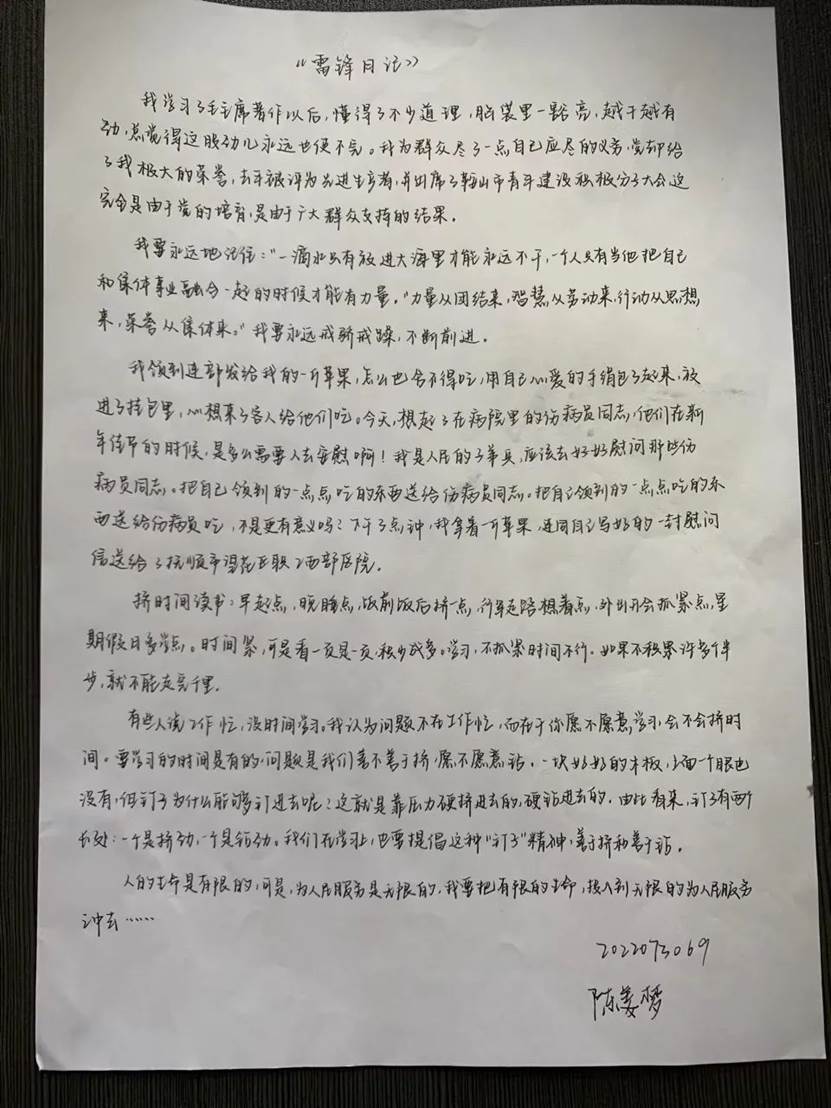 《雷锋日记》
我学习了毛主席著作以后，懂得了不少道理，脑袋里一豁亮，越干越有
劲，总觉得这股劲儿永远也使不完。我为群众尽了一点自己应尽的义务，党却给
了我极大的荣誉，去年被评为先进生产者，并出席了鞍山市青年建设积极分子大会，这
完全是由于党的培育，是由于广大群众支持的结果。
我要永远地记住：“一滴水只有放进大海里才能永远不干，一个人只有当他把自己
和集体事业融合一起的时候才能有力量。”力量从团结来，智慧从劳动来，行动从思想
来，荣誉从集体来。”我要永远戒骄戒躁，不断前进。
我领到连部发给我的一斤苹果，怎么也舍不得吃，用自己心爱的手绢包了起来，放
进了挂包里，心想来了客人给他们吃。今天，想起了在病院里的伤病员同志，他们在新
年佳节的时候，是多么需要人去安慰啊！我是人民的子弟兵，应该去好好慰问那些伤
病员同志。把自己领到的一点点吃的东西送给伤病员同志。把自己领到的一点点吃的东
西送给伤病员吃，不是更有意义吗？下午3点钟，我拿着一斤苹果，连同自己写好的一封慰问
信送给了抚顺市望花区职工西部医院。
挤时间读书：早起点，晚睡点，饭前饭后挤一点，行军走路想着点，外出开会抓紧点，星
期假日多学点。时间紧，可是看一页是一页，积少成多。学习，不抓紧时间不行。如果不积累许多个半
步，就不能走完千里。
有些人说工作忙，没时间学习。我认为问题不在工作忙，而在于你愿不愿意学习，会不会挤时
间。要学习的时间是有的，问题是我们善不善于挤，愿不愿意钻。一块好好的木板，上面一个眼也
没有，但钉子为什么能够钉进去呢？这就是靠压力硬挤进去的，硬钻进去的。由此看来，钉子有两个
长处：一个是挤劲，一个是钻劲。我们在学习上，也要提倡这种“钉子”精神，善于挤和善于钻。
人的生命是有限的，可是，为人民服务是无限的，我要把有限的生命，投入到无限的为人民服务
之中去……
2022073069
陈姜梦